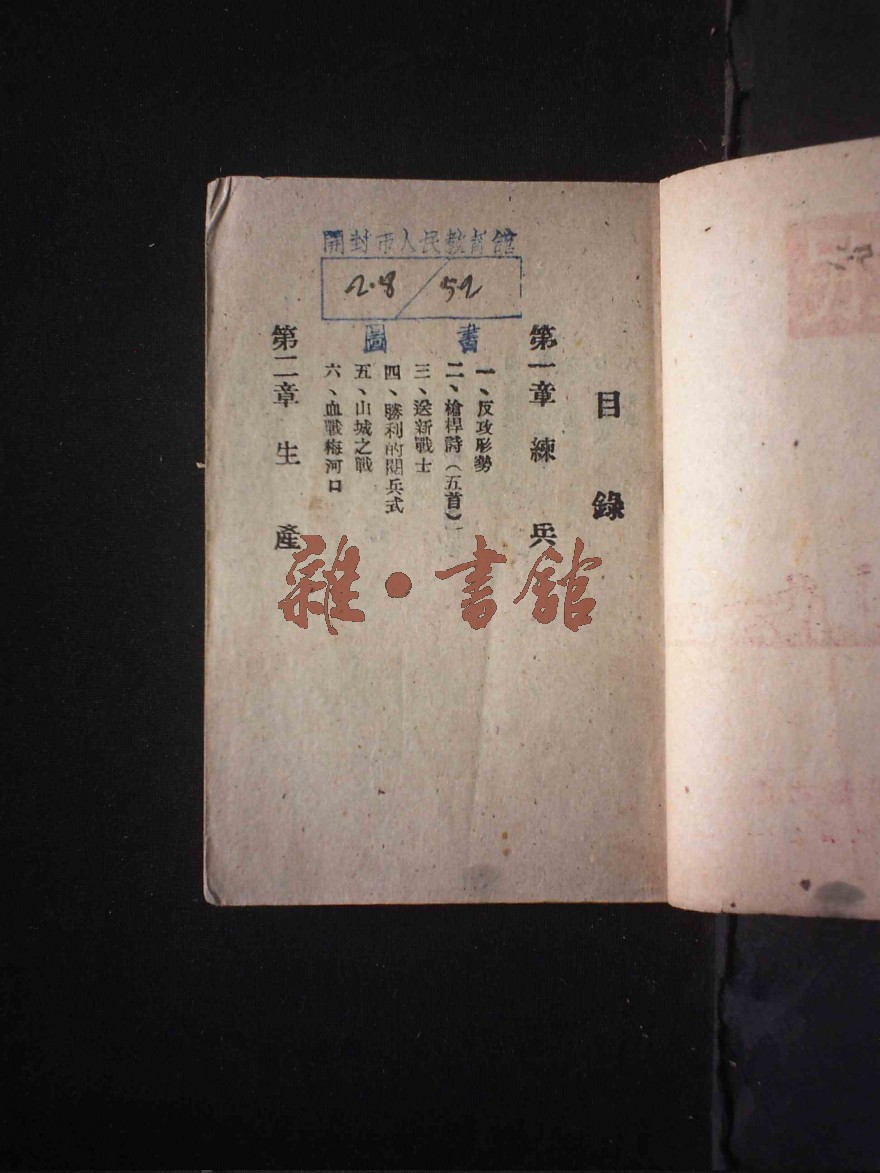 開封市人民教育館
2.8/52
圖書
目錄
第一章 練兵
一、反攻形勢
二、槍桿詩（五首）
三、送新戰士
四、勝利的閱兵式
五、山城之戰
六、血戰梅河口
第二章 生產
雜·書館